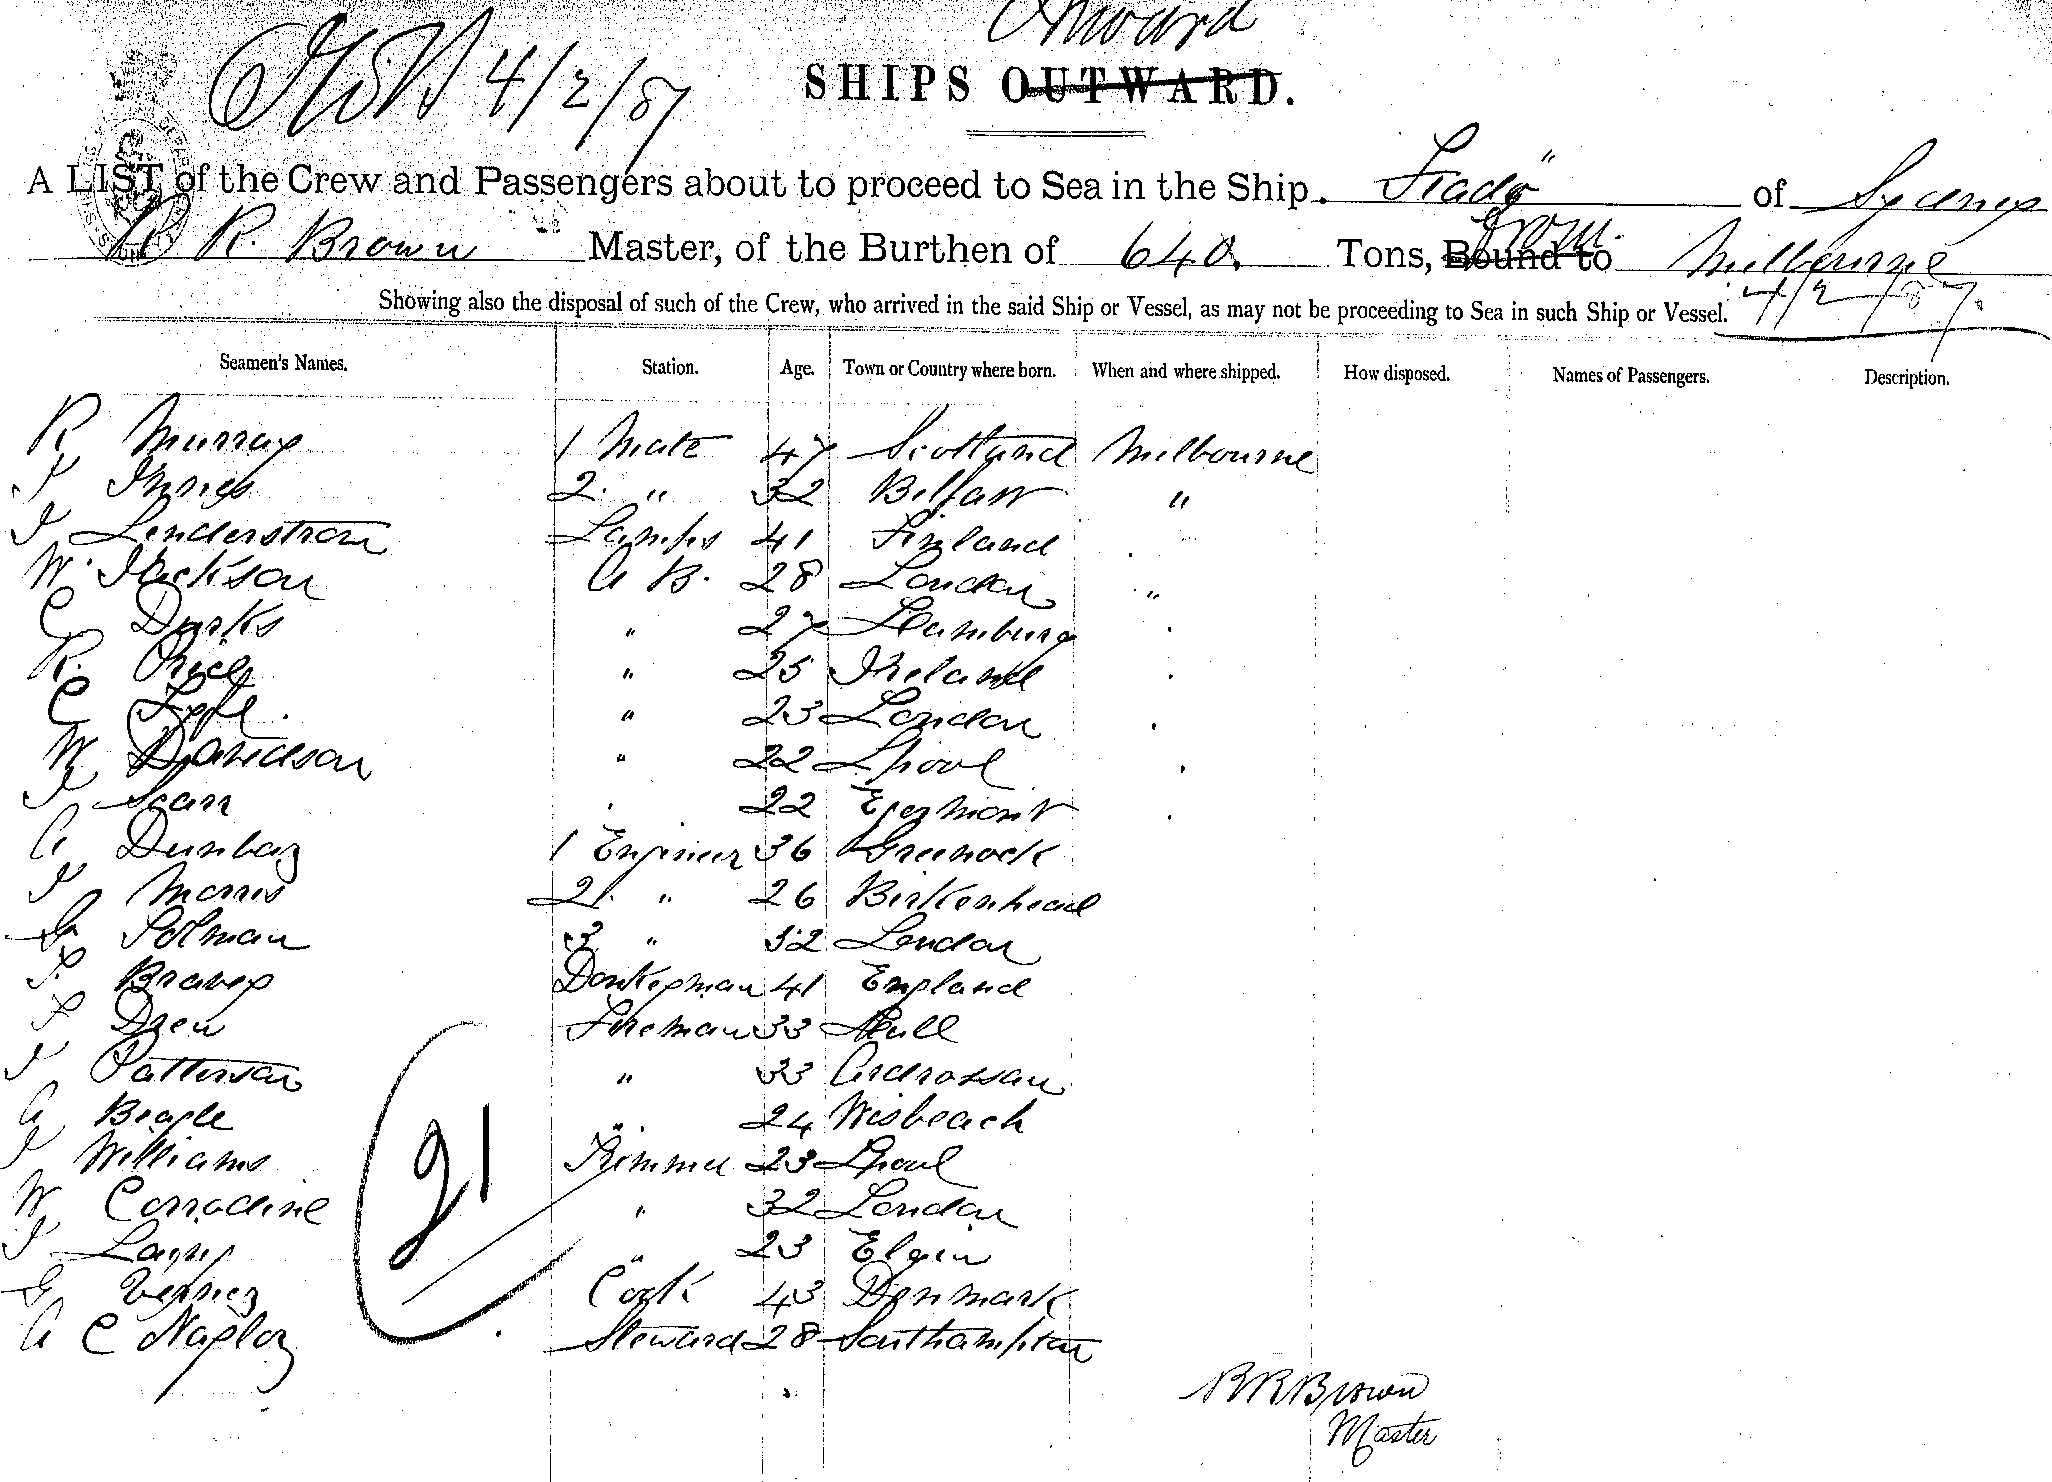 Onward
4/2/87
SHIPS OUTWARD.
A LIST of the Crew and Passengers about to proceed to Sea in the Ship. of Sydney
R. Brown Master, of the Burthen of 640. Tons, Bound to from Melbourne
Showing also the disposal of such of the Crew, who arrived in the said Ship or Vessel, as may not be proceeding to Sea in such Ship or Vessel. 4/2/87.
Seamen's Names. Station. Age. Town or Country where born. When and where shipped. How disposed. Names of Passengers. Description.
R Murray 1 Mate 47 Scotland Melbourne
J Innes 2. " 32 Belfast "
J Lenderstrom Lamps 41 Finland
W. Jackson A B. 28 London "
C Durks " 27 Hamburg
R. Rice " 25 Ireland
C " 23 London
W Davidson " 22 Lpool
J Scarr 22 Egremont
A Dunbar 1 Engineer 36 Greenock
J Morris 2. " 26 Birkenhead
G Solman 3 " 32 London
Bravey Donkeyman 41 England
Drew Fireman 33 Hull
J Patterson " 33 Ardrossan
A Beagle " 24 Wisbeach
J Williams Trimmer 23 Lpool
W Corradine " 32 London
J Laing " 23 Elgin
G Cook 43 Denmark
A C Naylor Steward 28 Southampton
21
R R Brown
Master